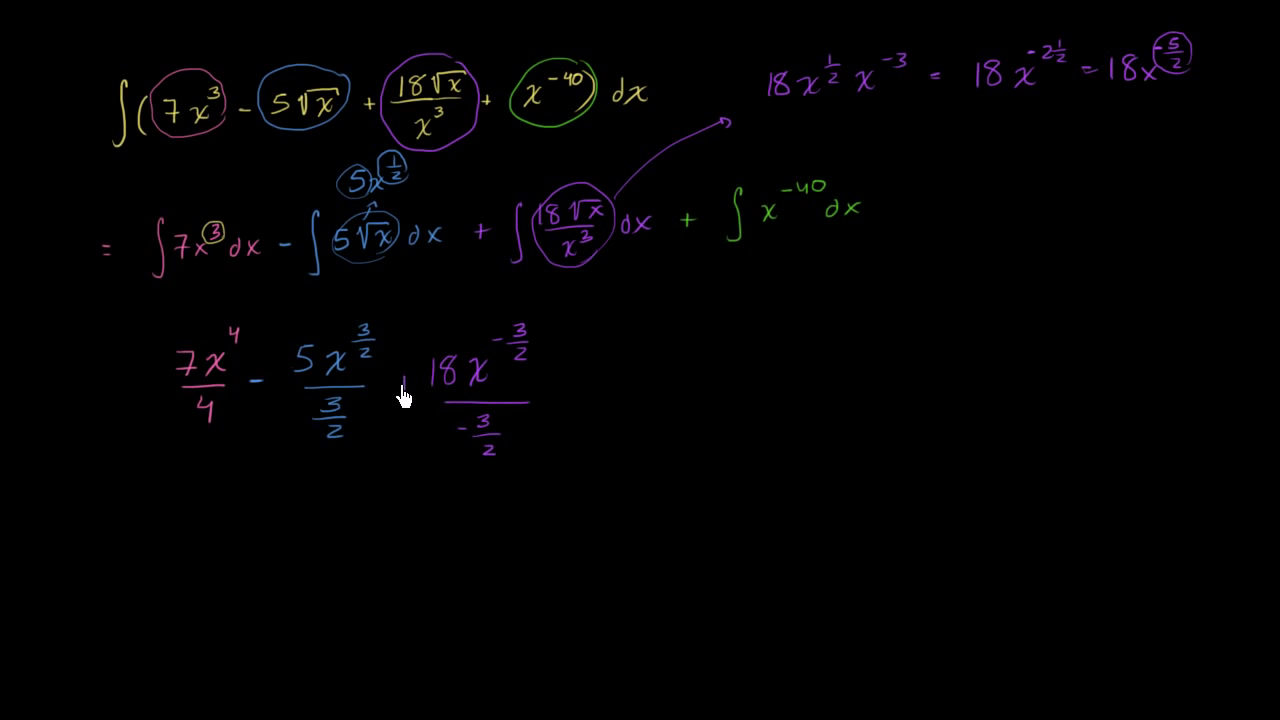 ∫(7x³ - 5√x + 18√x/x³ + x⁻⁴⁰) dx
18x^(1/2) x⁻³ = 18x^(-2 1/2) = 18x^(-5/2)
5x^(1/2)
= ∫7x³dx - ∫5√x dx + ∫18√x/x³ dx + ∫x⁻⁴⁰dx
7x⁴/4 - 5x^(3/2)/(3/2) 18x^(-3/2)/(-3/2)